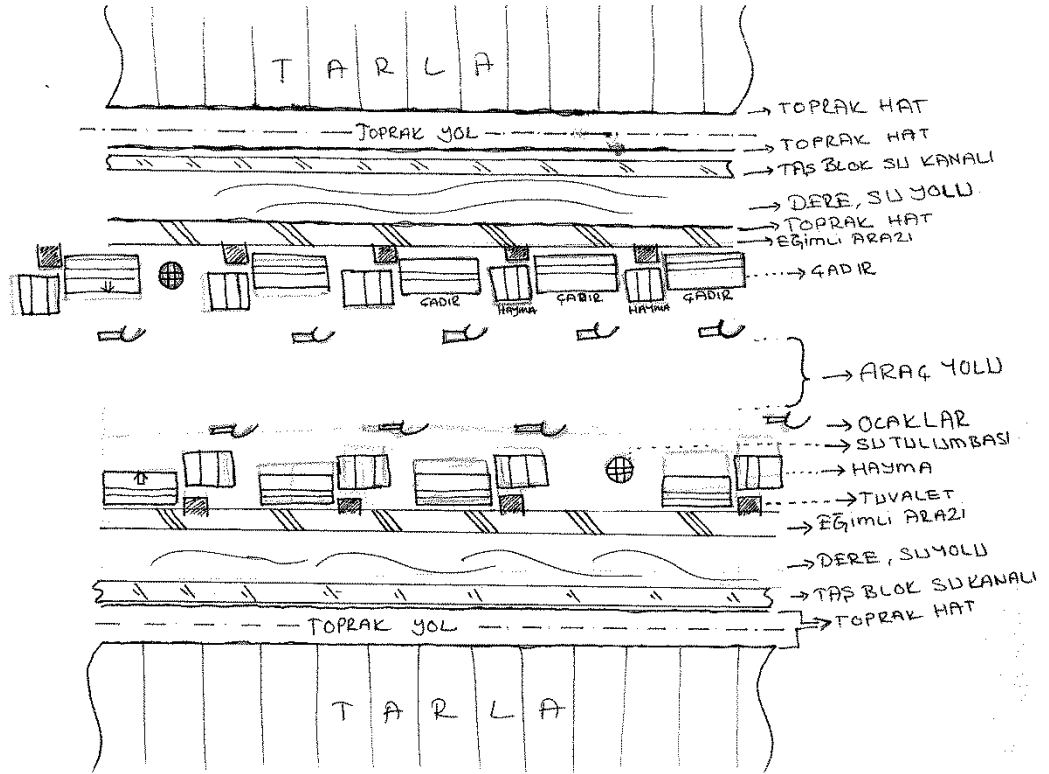 TARLA
TOPRAK HAT
TOPRAK YOL
TOPRAK HAT
TAŞ BLOK SU KANALI
DERE, SU YOLU
TOPRAK HAT
EĞİMLİ ARAZİ
ÇADIR
ÇADIR
HAYMA
ÇADIR
HAYMA
ÇADIR
ARAÇ YOLU
OCAKLAR
SU TULUMBASI
HAYMA
TUVALET
EĞİMLİ ARAZİ
DERE, SUYOLU
TAŞ BLOK SU KANALI
TOPRAK HAT
TOPRAK YOL
TARLA